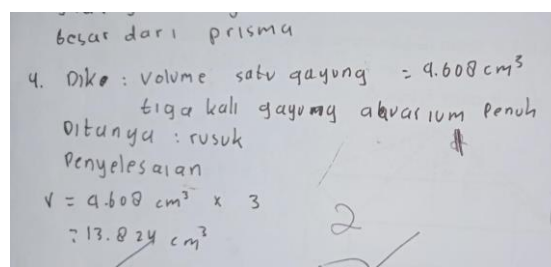 besar dari prisma
4. Dik : Volume satu gayung = 4.608 cm³
tiga kali gayung akuarium penuh
Ditanya : rusuk
Penyelesaian
V = 4.608 cm³ x 3
= 13.824 cm³
2